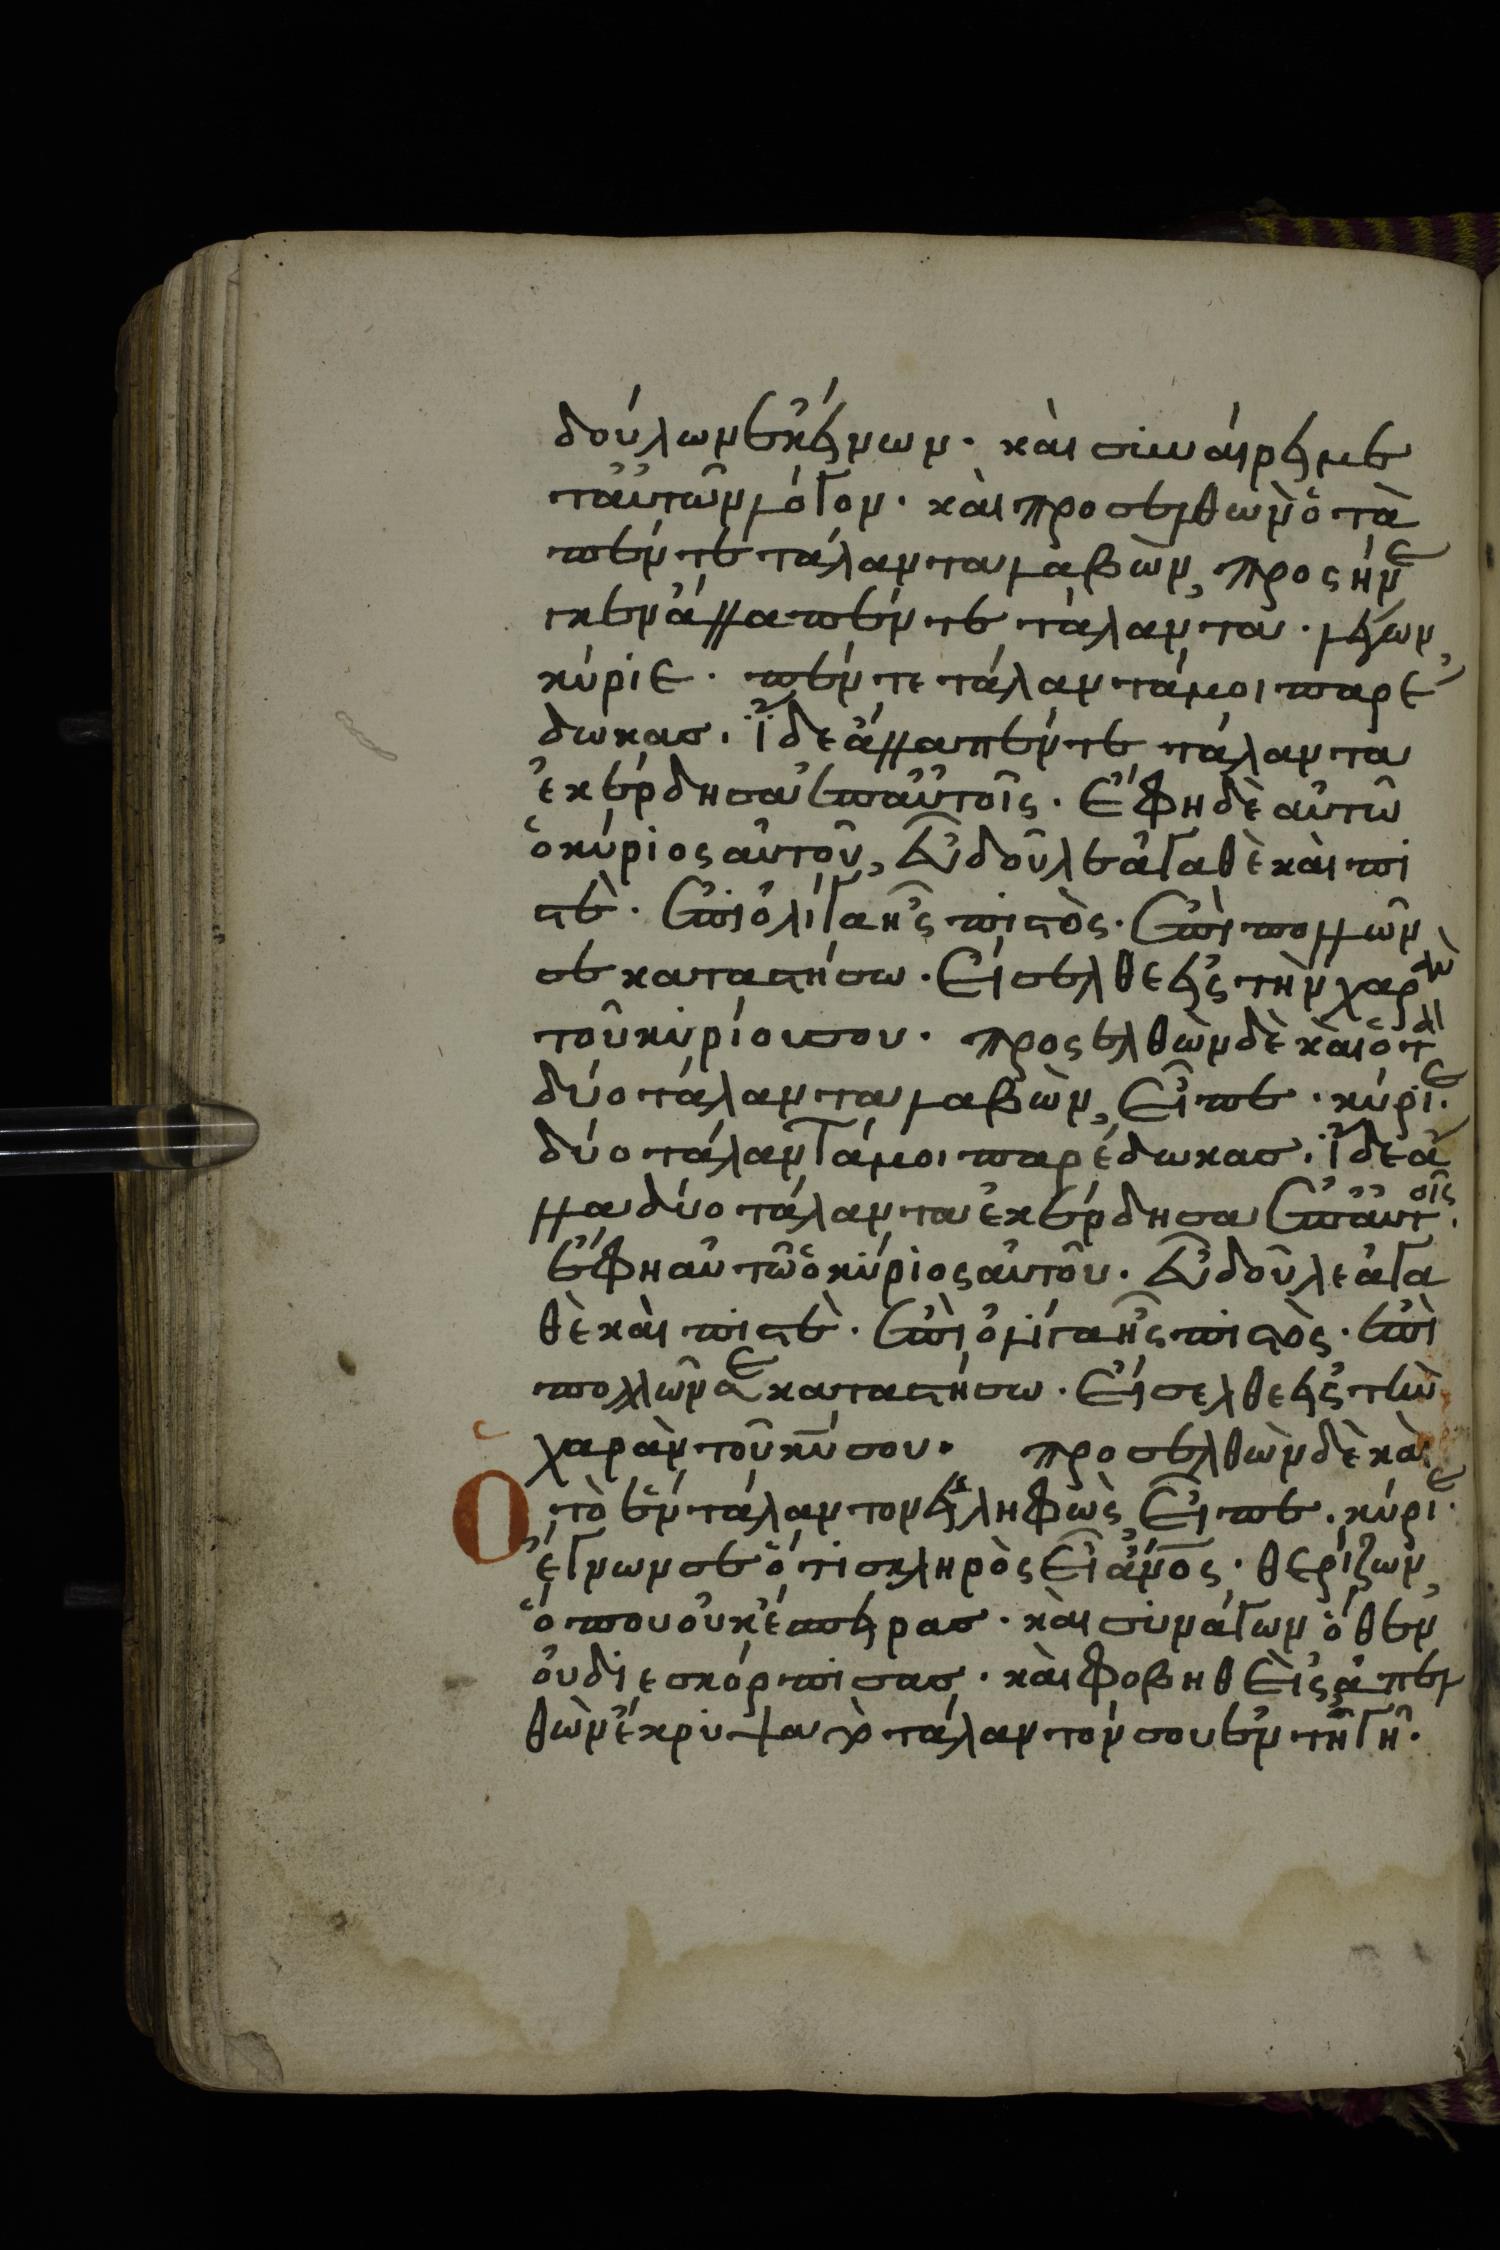 δούλων ἐκείνων· καὶ συναίρει μετ
ἀυτῶν λόγον· καὶ προσελθὼν ὁ τὰ
πέντε τάλαντα λαβὼν, προσήνε
γκεν ἄλλα πέντε τάλαντα· λέγων,
κύριε· πέντε τάλαντά μοι παρέ
δωκας· ἴδε ἄλλα πέντε τάλαντα
ἐκέρδησα ἐπ αὐτοῖς· ἔφη δὲ αὐτῶ
ὁ κύριος αὐτοῦ, εὖ δοῦλε ἀγαθὲ καὶ πι
στὲ· ἐπὶ ὀλίγα ἦς πιστὸς· ἐπὶ πολλῶν
σε καταστήσω· εἴσελθε εἰς τὴν χαρὰν
τοῦ κυρίου σου· προσελθὼν δὲ καὶ ὁ τὰ
δύο τάλαντα λαβὼν, εἶπε· κύριε·
δύο τάλαντά μοι παρέδωκας· ἴδε ἄ
λλα δύο τάλαντα ἐκέρδησα ἐπ αὐτοῖς·
ἔφη αὐτῶ ὁ κύριος αὐτοῦ· εὖ δοῦλε ἀγα
θὲ καὶ πιστὲ· ἐπὶ ὀλίγα ἦς πιστὸς· ἐπὶ
πολλῶν σε καταστήσω· εἴσελθε εἰς τὴν
χαρὰν τοῦ κυ σου· προσελθὼν δὲ καὶ
ὁ τὸ ἓν τάλαντον εἰληφὼς, εἶπε· κύριε·
ἔγνων σε ὅτι σκληρὸς εἶ ἄνος· θερίζων,
ὅπου οὐκ ἔσπειρας· καὶ συνάγων ὅθεν
οὐ διεσκόρπισας· καὶ φοβηθεὶς ἀπελ
θὼν ἔκρυψα τὸ τάλαντόν σου ἐν τῆ γῆ·